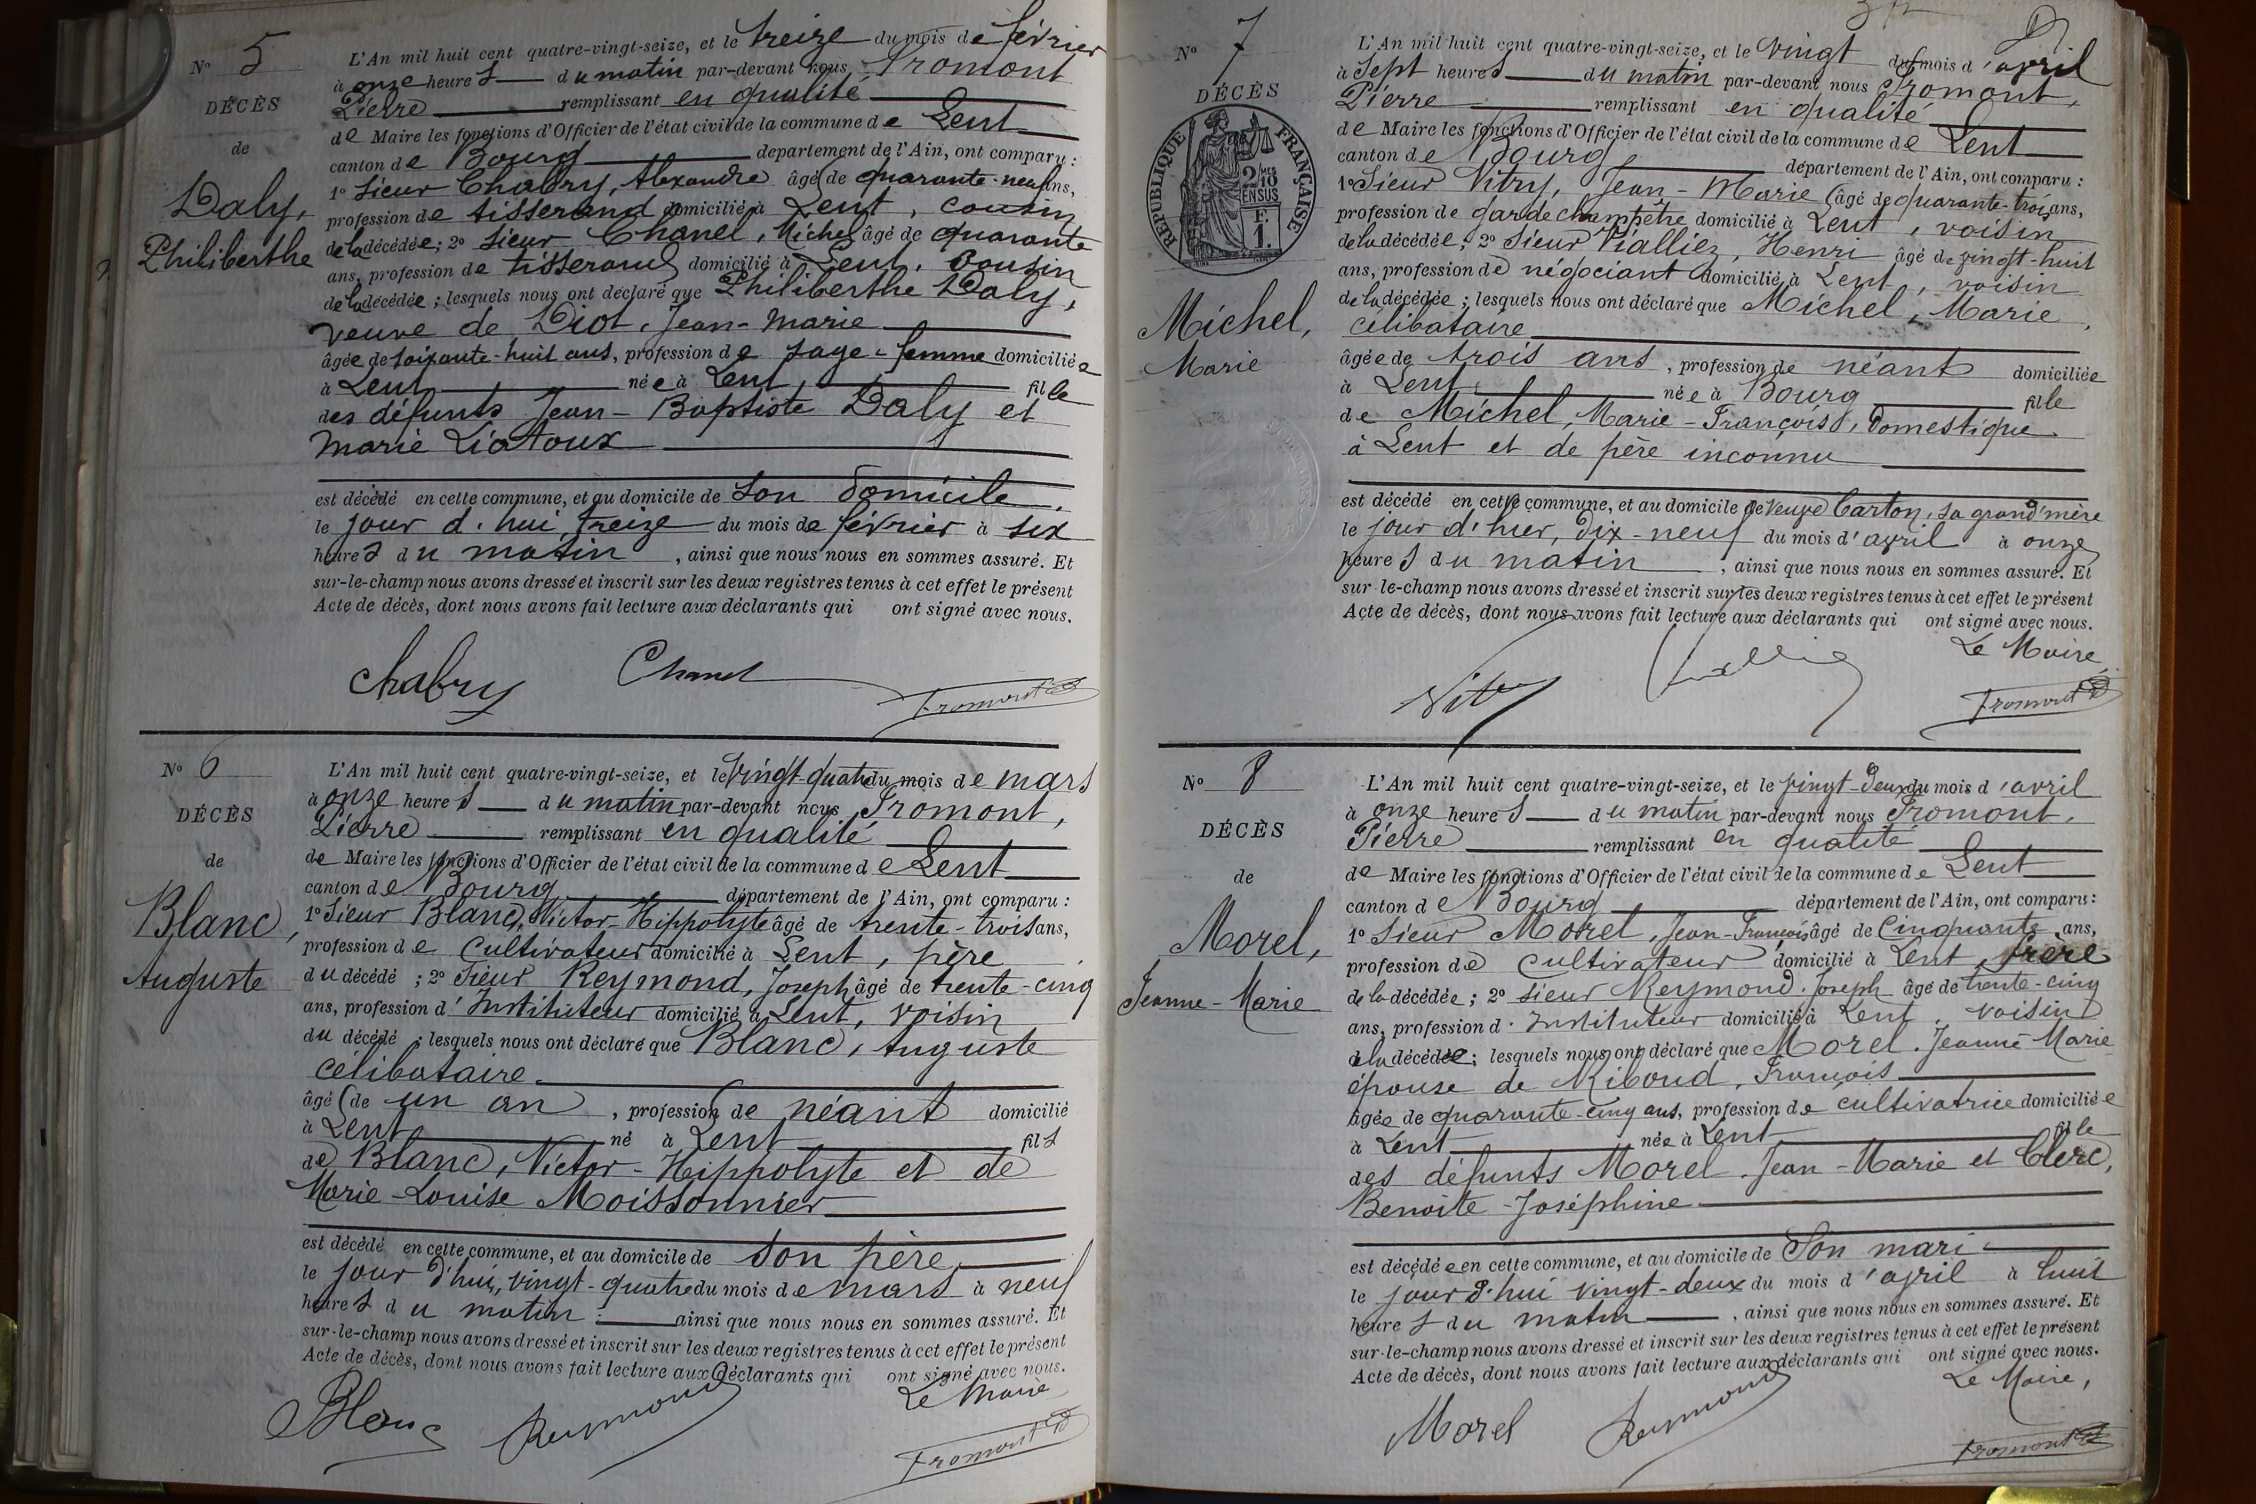 N° 5
DÉCÈS
de
Daly,
Philiberthe
L'An mil huit cent quatre-vingt-seize, et le treize du mois de février
à onze heures du matin par-devant nous Fromont
Pierre remplissant en qualité
de Maire les fonctions d'Officier de l'état civil de la commune de Lent
canton de Bourg département de l'Ain, ont comparu :
1° Sieur Chabry, Alexandre âgé de quarante-neuf ans,
profession de tisserand domicilié à Lent, cousin
de la décédée; 2° Sieur Chanel, Michel âgé de quarante
ans, profession de tisserand domicilié à Lent, cousin
de la décédée ; lesquels nous ont déclaré que Philiberthe Daly,
veuve de Diot, Jean-Marie
âgée de soixante-huit ans, profession de sage-femme domiciliée
à Lent née à Lent, fille
des défunts Jean-Baptiste Daly et
Marie Liatoux
est décédé en cette commune, et au domicile de son domicile,
le jour d'hui treize du mois de février à six
heures du matin, ainsi que nous nous en sommes assuré. Et
sur-le-champ nous avons dressé et inscrit sur les deux registres tenus à cet effet le présent
Acte de décès, dont nous avons fait lecture aux déclarants qui ont signé avec nous.
Chabry Chanel
Fromont
N° 6
DÉCÈS
de
Blanc,
Auguste
L'An mil huit cent quatre-vingt-seize, et le vingt-quatre du mois de mars
à onze heures du matin par-devant nous Fromont,
Pierre remplissant en qualité
de Maire les fonctions d'Officier de l'état civil de la commune de Lent
canton de Bourg département de l'Ain, ont comparu :
1° Sieur Blanc, Victor-Hippolyte âgé de trente-trois ans,
profession de cultivateur domicilié à Lent, père
du décédé ; 2° Sieur Reymond, Joseph âgé de trente-cinq
ans, profession d'Instituteur domicilié à Lent, voisin
du décédé ; lesquels nous ont déclaré que Blanc, Auguste
célibataire
âgé de un an, profession de néant domicilié
à Lent né à Lent fils
de Blanc, Victor-Hippolyte et de
Marie-Louise Moissonnier
est décédé en cette commune, et au domicile de son père,
le jour d'hui, vingt-quatre du mois de mars à neuf
heures du matin ainsi que nous nous en sommes assuré. Et
sur-le-champ nous avons dressé et inscrit sur les deux registres tenus à cet effet le présent
Acte de décès, dont nous avons fait lecture aux déclarants qui ont signé avec nous.
Le Maire
Blanc Reymond
Fromont
N° 7
DÉCÈS
RÉPUBLIQUE FRANÇAISE
2/10
EN SUS
F.
1.
Michel,
Marie
L'An mil huit cent quatre-vingt-seize, et le vingt du mois d'avril
à sept heures du matin par-devant nous Fromont,
Pierre remplissant en qualité
de Maire les fonctions d'Officier de l'état civil de la commune de Lent
canton de Bourg département de l'Ain, ont comparu :
1° Sieur Vitry, Jean-Marie âgé de quarante-trois ans,
profession de garde champêtre domicilié à Lent, voisin
de la décédée; 2° Sieur Vialliez, Henri âgé de vingt-huit
ans, profession de négociant domicilié à Lent, voisin
de la décédée ; lesquels nous ont déclaré que Michel, Marie,
célibataire
âgée de trois ans, profession de néant domiciliée
à Lent, née à Bourg fille
de Michel, Marie-François, domestique
à Lent et de père inconnu
est décédé en cette commune, et au domicile de veuve Carton, sa grand'mère
le jour d'hier, dix-neuf du mois d'avril à onze
heures du matin, ainsi que nous nous en sommes assuré. Et
sur-le-champ nous avons dressé et inscrit sur les deux registres tenus à cet effet le présent
Acte de décès, dont nous avons fait lecture aux déclarants qui ont signé avec nous.
Le Maire,
Vitry
Fromont
N° 8
DÉCÈS
de
Morel,
Jeanne-Marie
L'An mil huit cent quatre-vingt-seize, et le vingt-deux du mois d'avril
à onze heures du matin par-devant nous Fromont,
Pierre remplissant en qualité
de Maire les fonctions d'Officier de l'état civil de la commune de Lent
canton de Bourg département de l'Ain, ont comparu :
1° Sieur Morel, Jean-François âgé de cinquante ans,
profession de cultivateur domicilié à Lent, frère
de la décédée; 2° Sieur Reymond, Joseph âgé de trente-cinq
ans, profession d'Instituteur domicilié à Lent, voisin
de la décédée; lesquels nous ont déclaré que Morel, Jeanne Marie
épouse de Riboud, François
âgée de quarante-cinq ans, profession de cultivatrice domiciliée
à Lent née à Lent fille
des défunts Morel, Jean-Marie et Clerc,
Benoîte-Joséphine
est décédée en cette commune, et au domicile de son mari
le jour d'hui vingt-deux du mois d'avril à huit
heures du matin, ainsi que nous nous en sommes assuré. Et
sur-le-champ nous avons dressé et inscrit sur les deux registres tenus à cet effet le présent
Acte de décès, dont nous avons fait lecture aux déclarants qui ont signé avec nous.
Le Maire,
Morel Reymond
Fromont